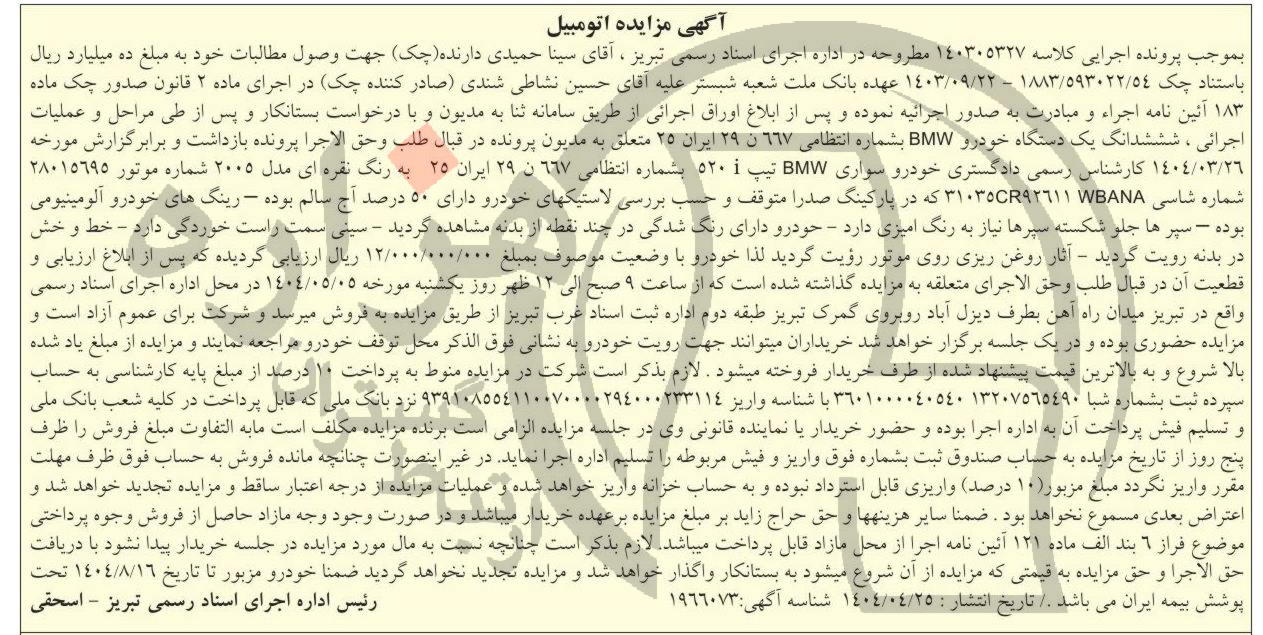 آگهی مزایده اتومبیل
بموجب پرونده اجرایی کلاسه ۱۴۰۳۰۵۳۲۷ مطروحه در اداره اجرای اسناد رسمی تبریز ، آقای سینا حمیدی دارنده(چک) جهت وصول مطالبات خود به مبلغ ده میلیارد ریال
باستناد چک ۱۸۸۳/۵۹۳۰۲۲/۵٤ – ۱٤۰۳/۰۹/۲۲ عهده بانک ملت شعبه شبستر علیه آقای حسین نشاطی شندی (صادر کننده چک) در اجرای ماده ۲ قانون صدور چک ماده
۱۸۳ آئین نامه اجراء و مبادرت به صدور اجرائیه نموده و پس از ابلاغ اوراق اجرائی از طریق سامانه ثنا به مدیون و با درخواست بستانکار و پس از طی مراحل و عملیات
اجرائی ، ششدانگ یک دستگاه خودرو BMW بشماره انتظامی ٦٦۷ ن ۲۹ ایران ۲۵ متعلق به مدیون پرونده در قبال طلب وحق الاجرا پرونده بازداشت و برابرگزارش مورخه
۱٤۰٤/۰۳/۲٦ کارشناس رسمی دادگستری خودرو سواری BMW تیپ ۵۲۰ i بشماره انتظامی ٦٦۷ ن ۲۹ ایران ۲۵ به رنگ نقره ای مدل ۲۰۰۵ شماره موتور ۲۸۰۱۵٦۹۵
شماره شاسی WBANA ۳۱۰۳۵CR۹۲٦۱۱ که در پارکینگ صدرا متوقف و حسب بررسی لاستیکهای خودرو دارای ۵۰ درصد آج سالم بوده – رینگ های خودرو آلومینیومی
بوده – سپر ها جلو شکسته سپرها نیاز به رنگ امیزی دارد - خودرو دارای رنگ شدگی در چند نقطه از بدنه مشاهده گردید - سینی سمت راست خوردگی دارد - خط و خش
در بدنه رویت گردید - آثار روغن ریزی روی موتور رؤیت گردید لذا خودرو با وضعیت موصوف بمبلغ ۱۲/۰۰۰/۰۰۰/۰۰۰ ریال ارزیابی گردیده که پس از ابلاغ ارزیابی و
قطعیت آن در قبال طلب وحق الاجرای متعلقه به مزایده گذاشته شده است که از ساعت ۹ صبح الی ۱۲ ظهر روز یکشنبه مورخه ۱٤۰٤/۰۵/۰۵ در محل اداره اجرای اسناد رسمی
واقع در تبریز میدان راه آهن بطرف دیزل آباد روبروی گمرک تبریز طبقه دوم اداره ثبت اسناد غرب تبریز از طریق مزایده به فروش میرسد و شرکت برای عموم آزاد است و
مزایده حضوری بوده و در یک جلسه برگزار خواهد شد خریداران میتوانند جهت رویت خودرو به نشانی فوق الذکر محل توقف خودرو مراجعه نمایند و مزایده از مبلغ یاد شده
بالا شروع و به بالاترین قیمت پیشنهاد شده از طرف خریدار فروخته میشود . لازم بذکر است شرکت در مزایده منوط به پرداخت ۱۰ درصد از مبلغ پایه کارشناسی به حساب
سپرده ثبت بشماره شبا ۱۳۲۰۷۵٦۵٤۹۰ ۳٦۰۱۰۰۰۰٤۰۵٤۰ با شناسه واریز ۹۳۹۱۰۸۵۵٤۱۱۰۰۷۰۰۰۰۲۹٤۰۰۰۲۳۳۱۱٤ نزد بانک ملی که قابل پرداخت در کلیه شعب بانک ملی
و تسلیم فیش پرداخت آن به اداره اجرا بوده و حضور خریدار یا نماینده قانونی وی در جلسه مزایده الزامی است برنده مزایده مکلف است مابه التفاوت مبلغ فروش را ظرف
پنج روز از تاریخ مزایده به حساب صندوق ثبت بشماره فوق واریز و فیش مربوطه را تسلیم اداره اجرا نماید. در غیر اینصورت چنانچه مانده فروش به حساب فوق ظرف مهلت
مقرر واریز نگردد مبلغ مزبور(۱۰ درصد) واریزی قابل استرداد نبوده و به حساب خزانه واریز خواهد شده و عملیات مزایده از درجه اعتبار ساقط و مزایده تجدید خواهد شد و
اعتراض بعدی مسموع نخواهد بود . ضمنا سایر هزینهها و حق حراج زاید بر مبلغ مزایده برعهده خریدار میباشد و در صورت وجود وجه مازاد حاصل از فروش وجوه پرداختی
موضوع فراز ٦ بند الف ماده ۱۲۱ آئین نامه اجرا از محل مازاد قابل پرداخت میباشد. لازم بذکر است چنانچه نسبت به مال مورد مزایده در جلسه خریدار پیدا نشود با دریافت
حق الاجرا و حق مزایده به قیمتی که مزایده از آن شروع میشود به بستانکار واگذار خواهد شد و مزایده تجدید نخواهد گردید ضمنا خودرو مزبور تا تاریخ ۱٤۰٤/۸/۱٦ تحت
پوشش بیمه ایران می باشد ./ تاریخ انتشار : ۱٤۰٤/۰٤/۲۵ شناسه آگهی:۱۹٦٦۰۷۳ رئیس اداره اجرای اسناد رسمی تبریز - اسحقی
هزاره
گستران
ارتباط